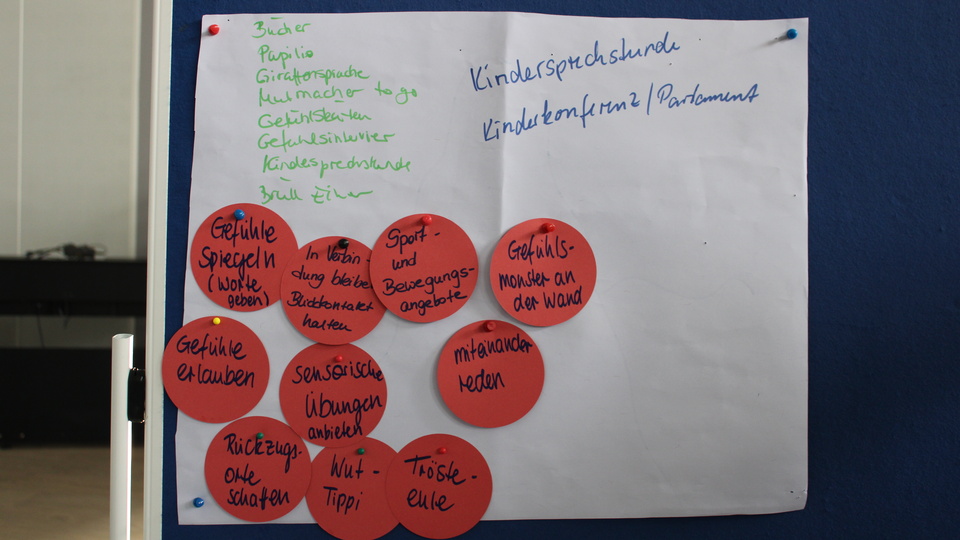 Bücher
Papilio
Giraffensprache
Mutmacher to go
Gefühlskarten
Kindersprechstunde
Kindersprechstunde
Kinderkonferenz/Parlament
Gefühle
Spiegeln
(Worte
geben)
In Verbin-
dung bleiben
Blickkontakt
halten
Sport-
und
Bewegungs-
angebote
Gefühls-
monster an
der Wand
Gefühle
erlauben
sensorische
Übungen
anbieten
miteinander
reden
Rückzugs-
orte
schaffen
Wut-
Tippi
Tröste-
eule